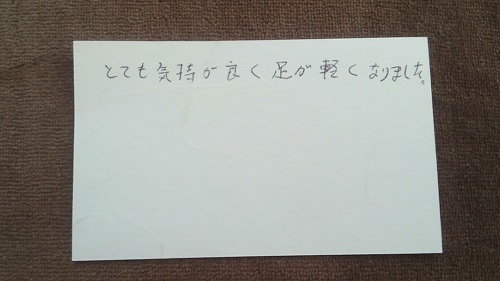 とても気持が良く足が軽くなりました。